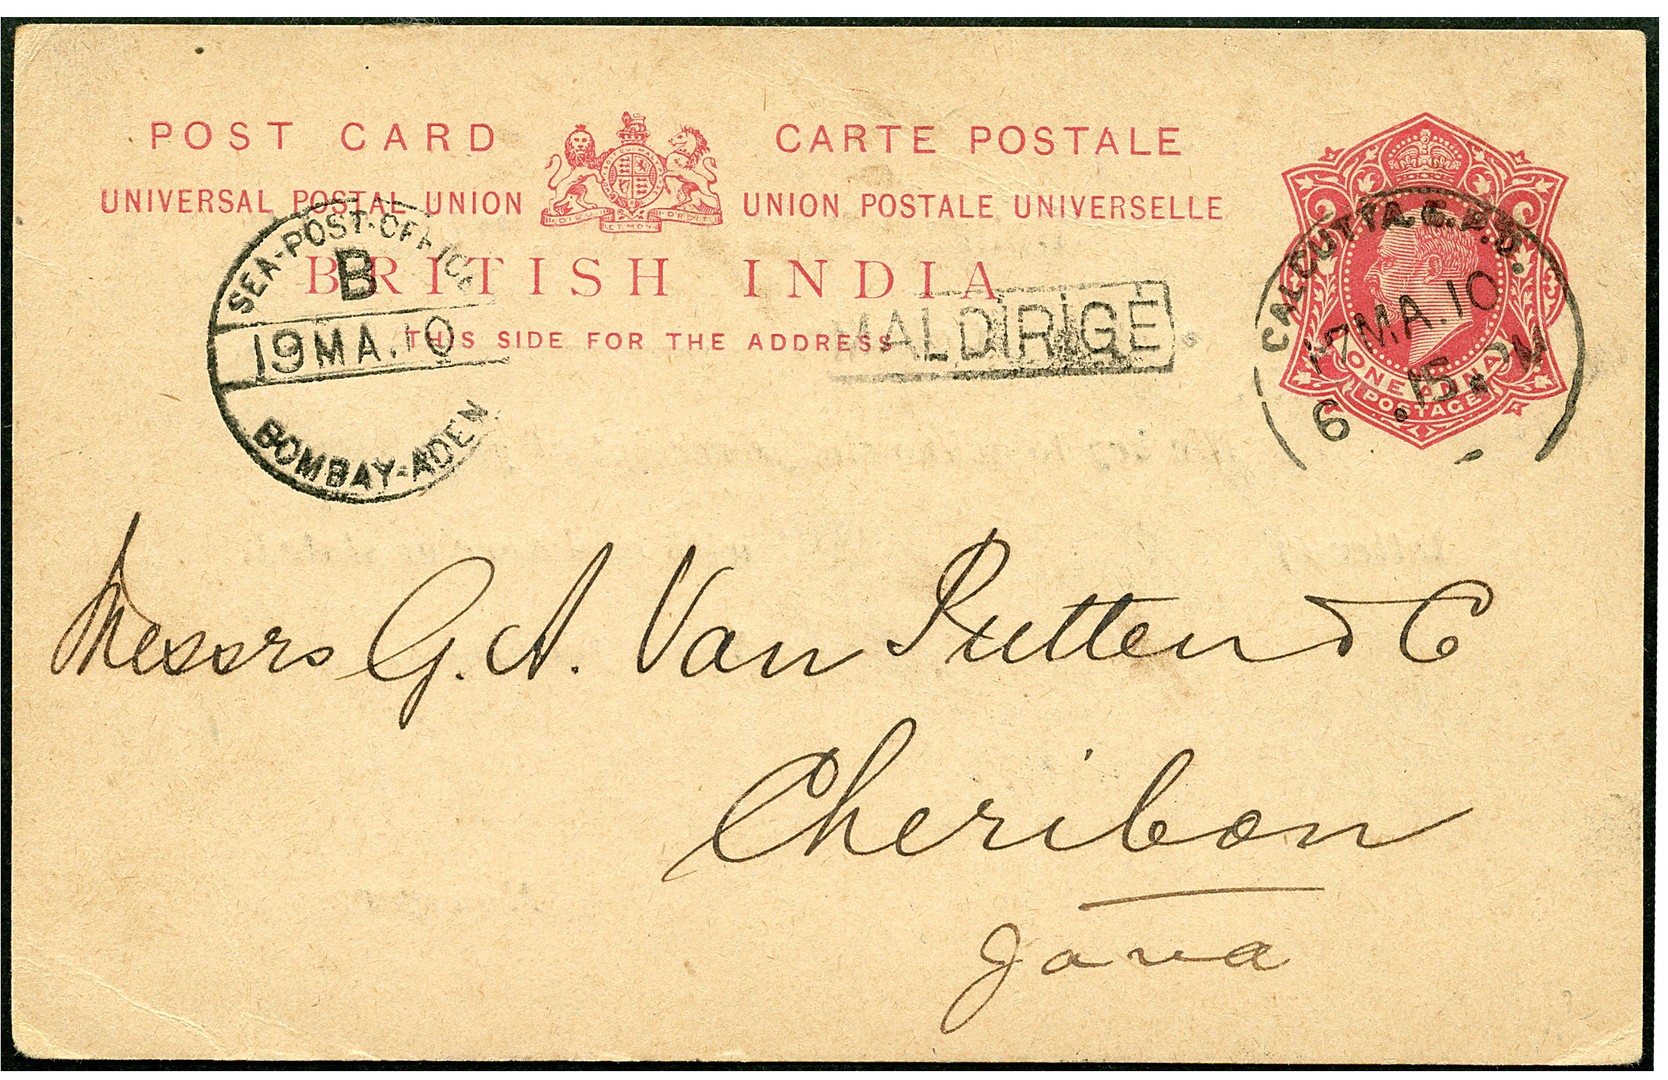 POST CARD CARTE POSTALE
UNIVERSAL POSTAL UNION UNION POSTALE UNIVERSELLE
DIEU ET MON DROIT
BRITISH INDIA
THIS SIDE FOR THE ADDRESS
SEA-POST-OFFICE
B
19 MA.10
BOMBAY-ADEN
MAL DIRIGÉ
CALCUTTA G.P.O.
17 MA.10
6 .15. PM
ONE ANNA
POSTAGE
Messrs G. A. Van Putten & C
Cheribon
Java